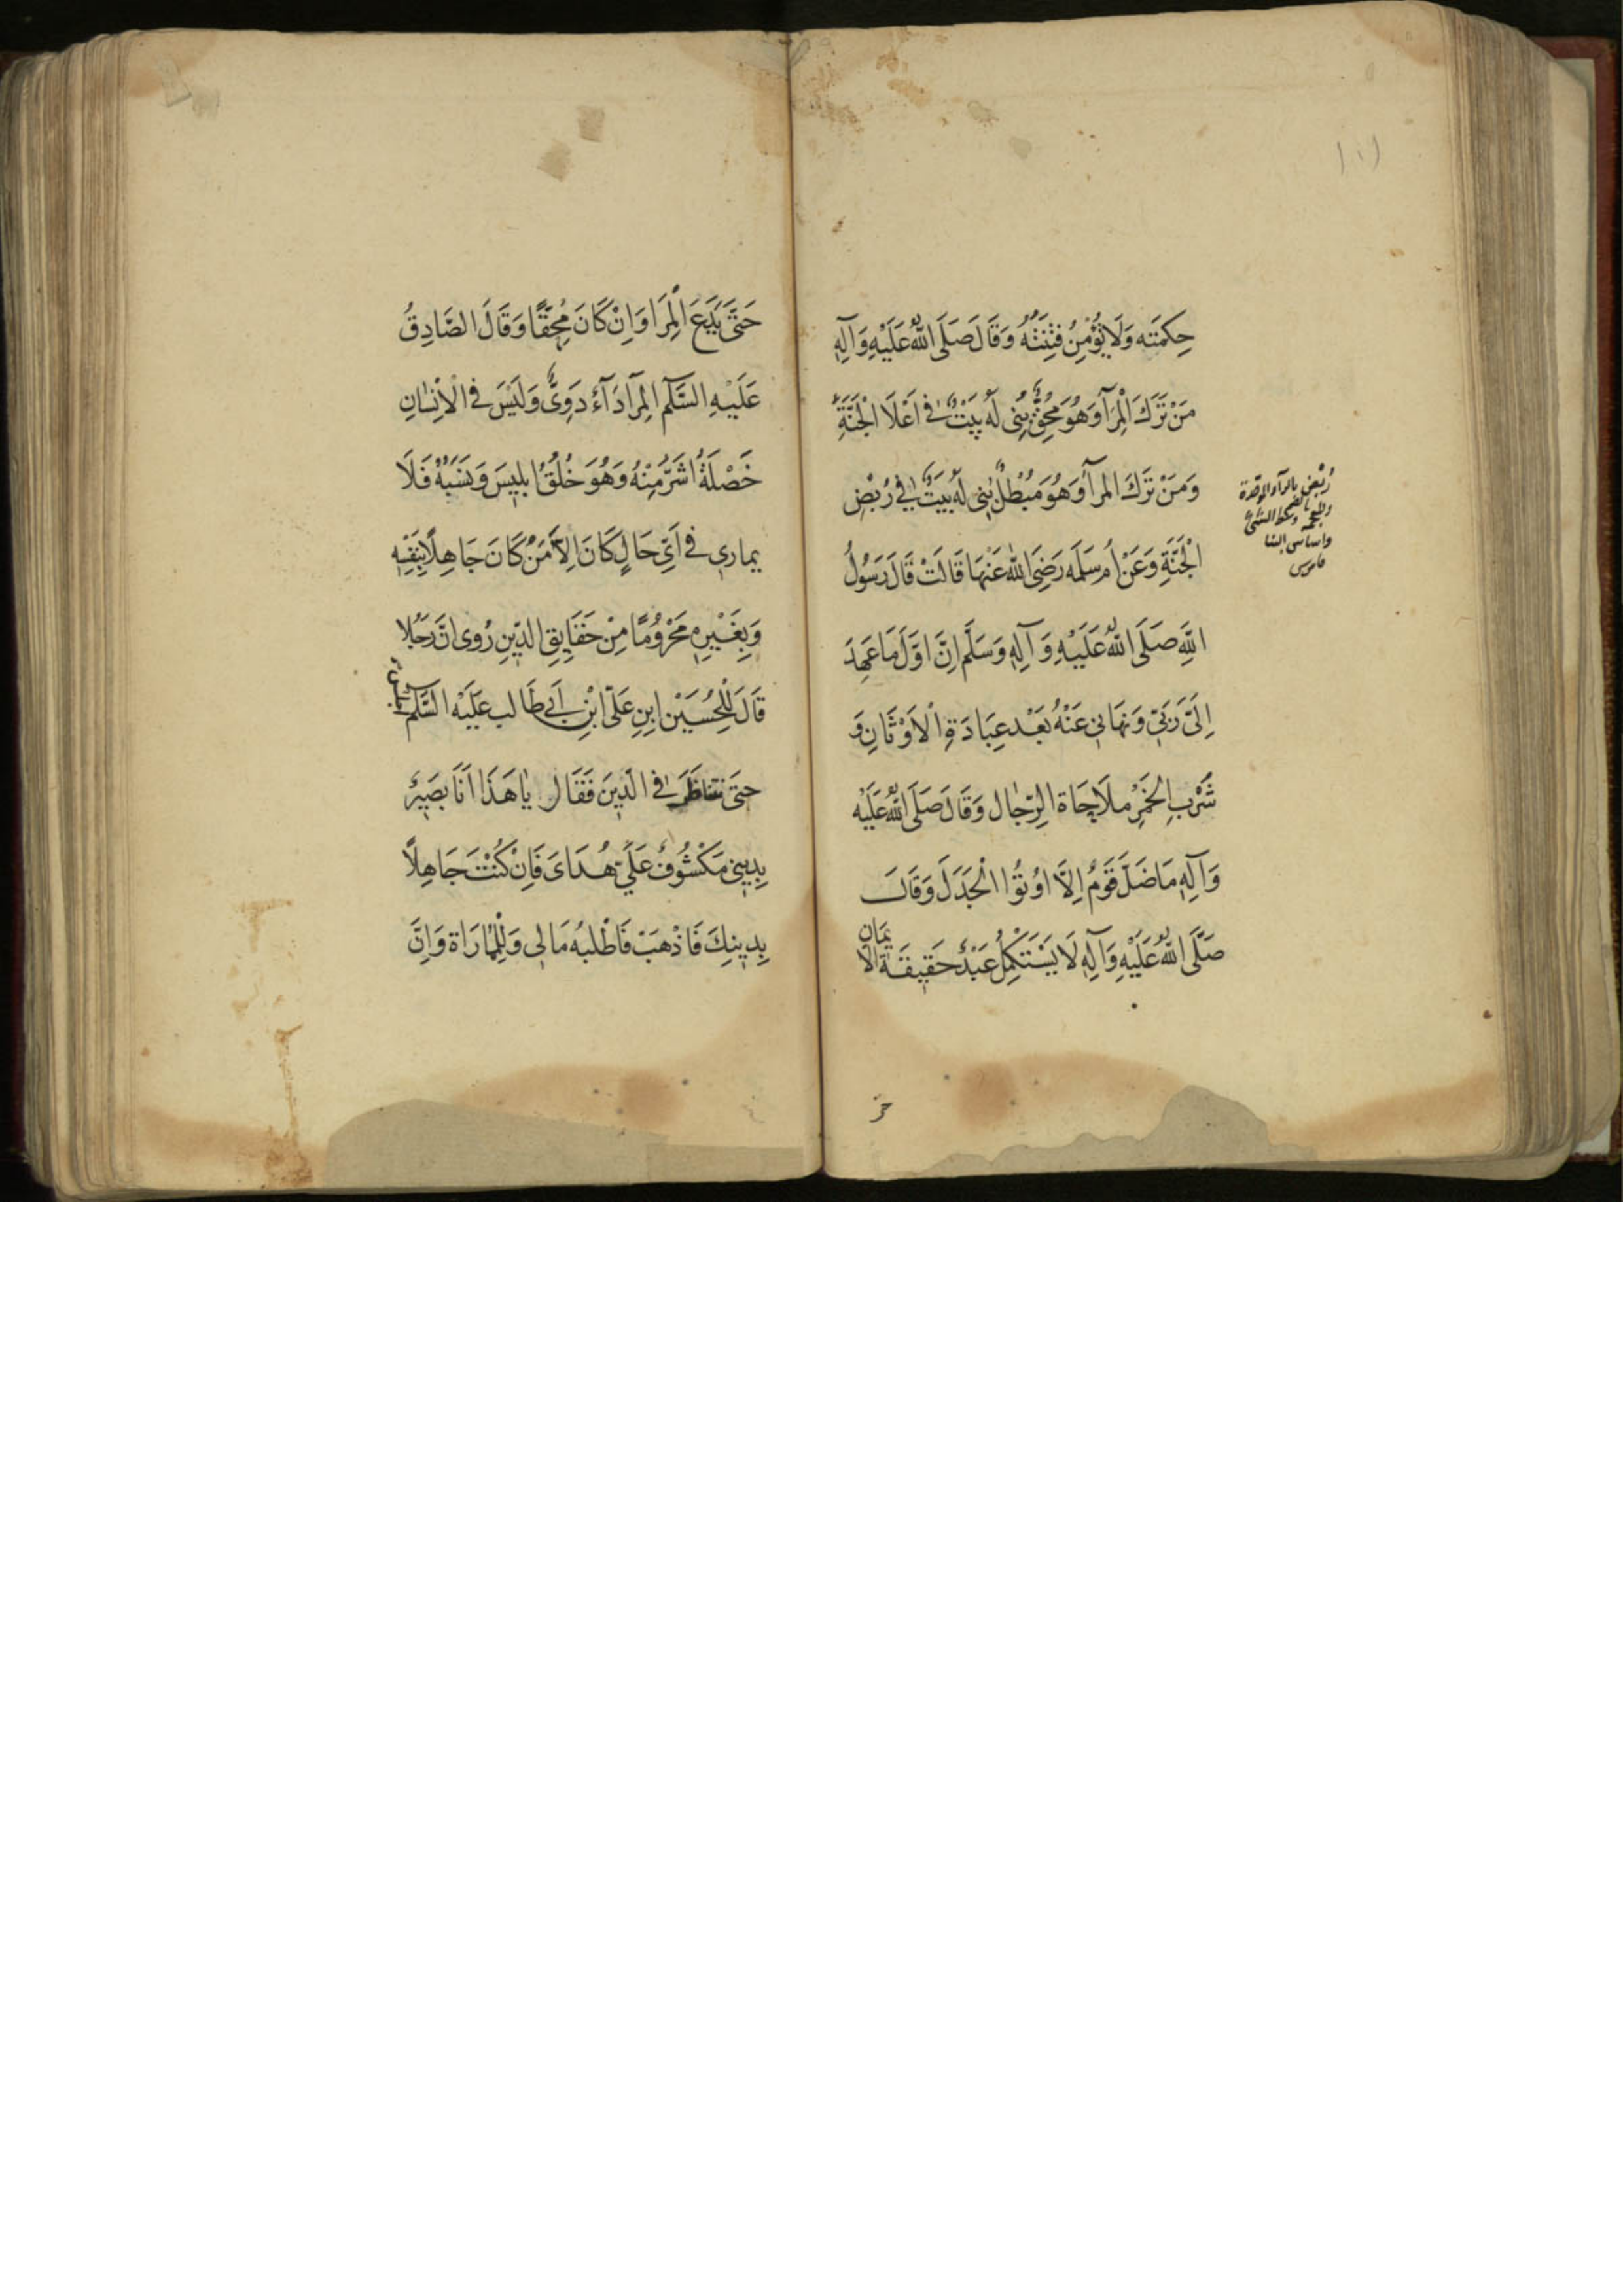 حِكمَته وَلَا يُؤْمِنُ فِتْنَتُهُ وَقَالَ صَلَى اللهُ عَلَيْهِ وَآلِهِ
مَنْ تَرَكَ الْمِرَآ وَهُوَ مُحِقٌّ بُنِى لَهُ بَيْتٌ فِى اَعْلَا الْجَنَّةِ
وَمَنْ تَرَكَ المرآ وَهُوَ مُبْطِلٌ بُنِى لَهُ بَيْتٌ فِى رُبْضِ
الْجَنَّةِ وَعَنْ اُم سَلَمَه رَضِىَ اللهُ عَنْهَا قَالَتْ قَالَ رَسُولُ
اللَّهِ صَلَى اللهُ عَلَيْهِ وَآلِهِ وَسَلَّم اِنَّ اَوَّلَ مَا عَهِدَ
اِلَىَّ رَبِّى وَنَهَانِى عَنْهُ بَعْد عِبَادَةِ الْاَوْثَانِ وَ
شَرْبِ الخَمْرِ مُلَاحَاة الرِّجَال وَقَالَ صَلَى اللهُ عَلَيْه
وَآلِهِ مَا ضَلَّ قَوْمٌ اِلَّا اوُتُوا الْجَدَلَ وَقَالَ
صَلَّى اللهُ عَلَيْهِ وَآلِهِ لَا يَسْتَكْمِلُ عَبْدٌ حَقِيقَةَ الايمَانِ
رُبْض بالرآء
واساس البنا
قاموس
حَتَّى يَدَعَ الْمِرَا وَاِنْ كَانَ مُحِقًّا وَقَالَ الصَّادِقُ
عَلَيْهِ السَّلَم المِرآ دَآءٌ دَوِىٌّ وَلَيْسَ فى الْاِنْسَانِ
خَصْلَةٌ اشَرُّ مِنْهُ وَهُوَ خُلُقُ ابلِيسَ وَنَسَبُهُ فَلَا
يمارى فى اَىِّ حَالٍ كَانَ اِلَّا مَنْ كَانَ جَاهِلًا بِنَفْسِهِ
وَبِغَيْرِهِ مَحْرُومًا مِنْ حَقَايِقِ الدِّينِ رُوى انَّ رَجُلا
قَالَ لِلْحُسَيْن ابنِ عَلىّ ابْنِ اَبى طَالب عَلَيْه السَّلم
حتى نتناظَرَ فى الدّينَ فَقَال يا هَذَا اَنَا بَصيرٌ
بِدِينِى مَكْشُوفٌ عَلَىَّ هُدَاىَ فَاِنْ كُنْتَ جَاهِلاً
بِدِينِكَ فَاذْهَبْ فَاطْلُبْهُ مَالِى وَلِلْمُارَاة وَاِنَّ